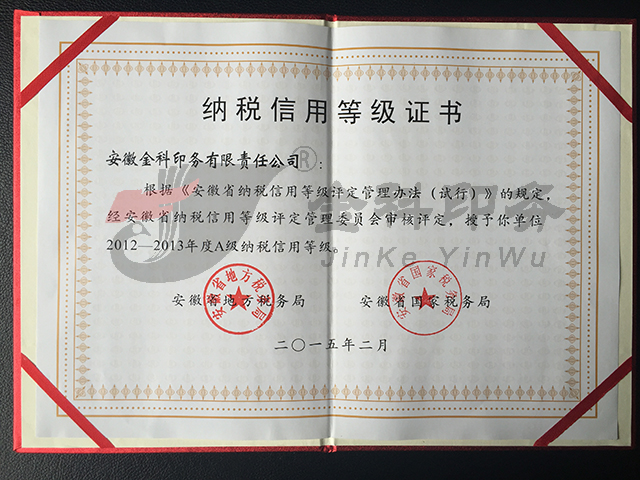 纳税信用等级证书
安徽金科印务有限责任公司：
根据《安徽省纳税信用等级评定管理办法（试行）》的规定，
经安徽省纳税信用等级评定管理委员会审核评定，授予你单位
2012—2013年度A级纳税信用等级。
金科印务
JinKe YinWu
®
安徽省地方税务局
安徽省国家税务局
安徽省地方税务局
安徽省国家税务局
二〇一五年二月